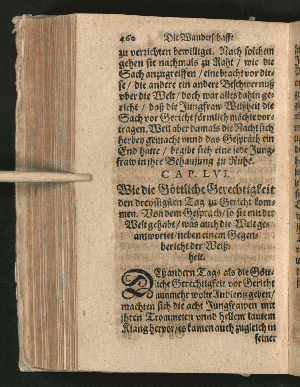 460 Die Wanderschafft
zu verrichten bewilliget. Nach solchem
gehen sie nachmals zu Raht / wie die
Sach anzugreiffen / eine bracht vor die-
se / die andere ein andere Beschwernuß
vber die Welt / doch war alles dahin ge-
richt / daß die Jungfraw Weißheit die
Sach vor Gericht förmlich möchte vor-
tragen. Weil aber damals die Nacht sich
herbey gemacht vnnd das Gespräch ein
End hatte / begibt sich eine jede Jung-
fraw in ihre Behausung zu Ruhe.
CAP. LVI.
Wie die Göttliche Gerechtigkeit
den dreyssigsten Tag zu Gericht kom-
men. Von dem Gespräch / so sie mit der
Welt gehabt / was auch die Welt ge-
antwortet / neben einem Gegen-
bericht der Weiß-
heit.
DEß andern Tags als die Gött-
liche Gerechtigkeit vor Gericht
nunmehr wolte Audientz geben /
machten sich die acht Jungfrawen mit
ihren Trommeten vnnd hellem lautem
Klang hervor / es kamen auch zugleich in
seiner